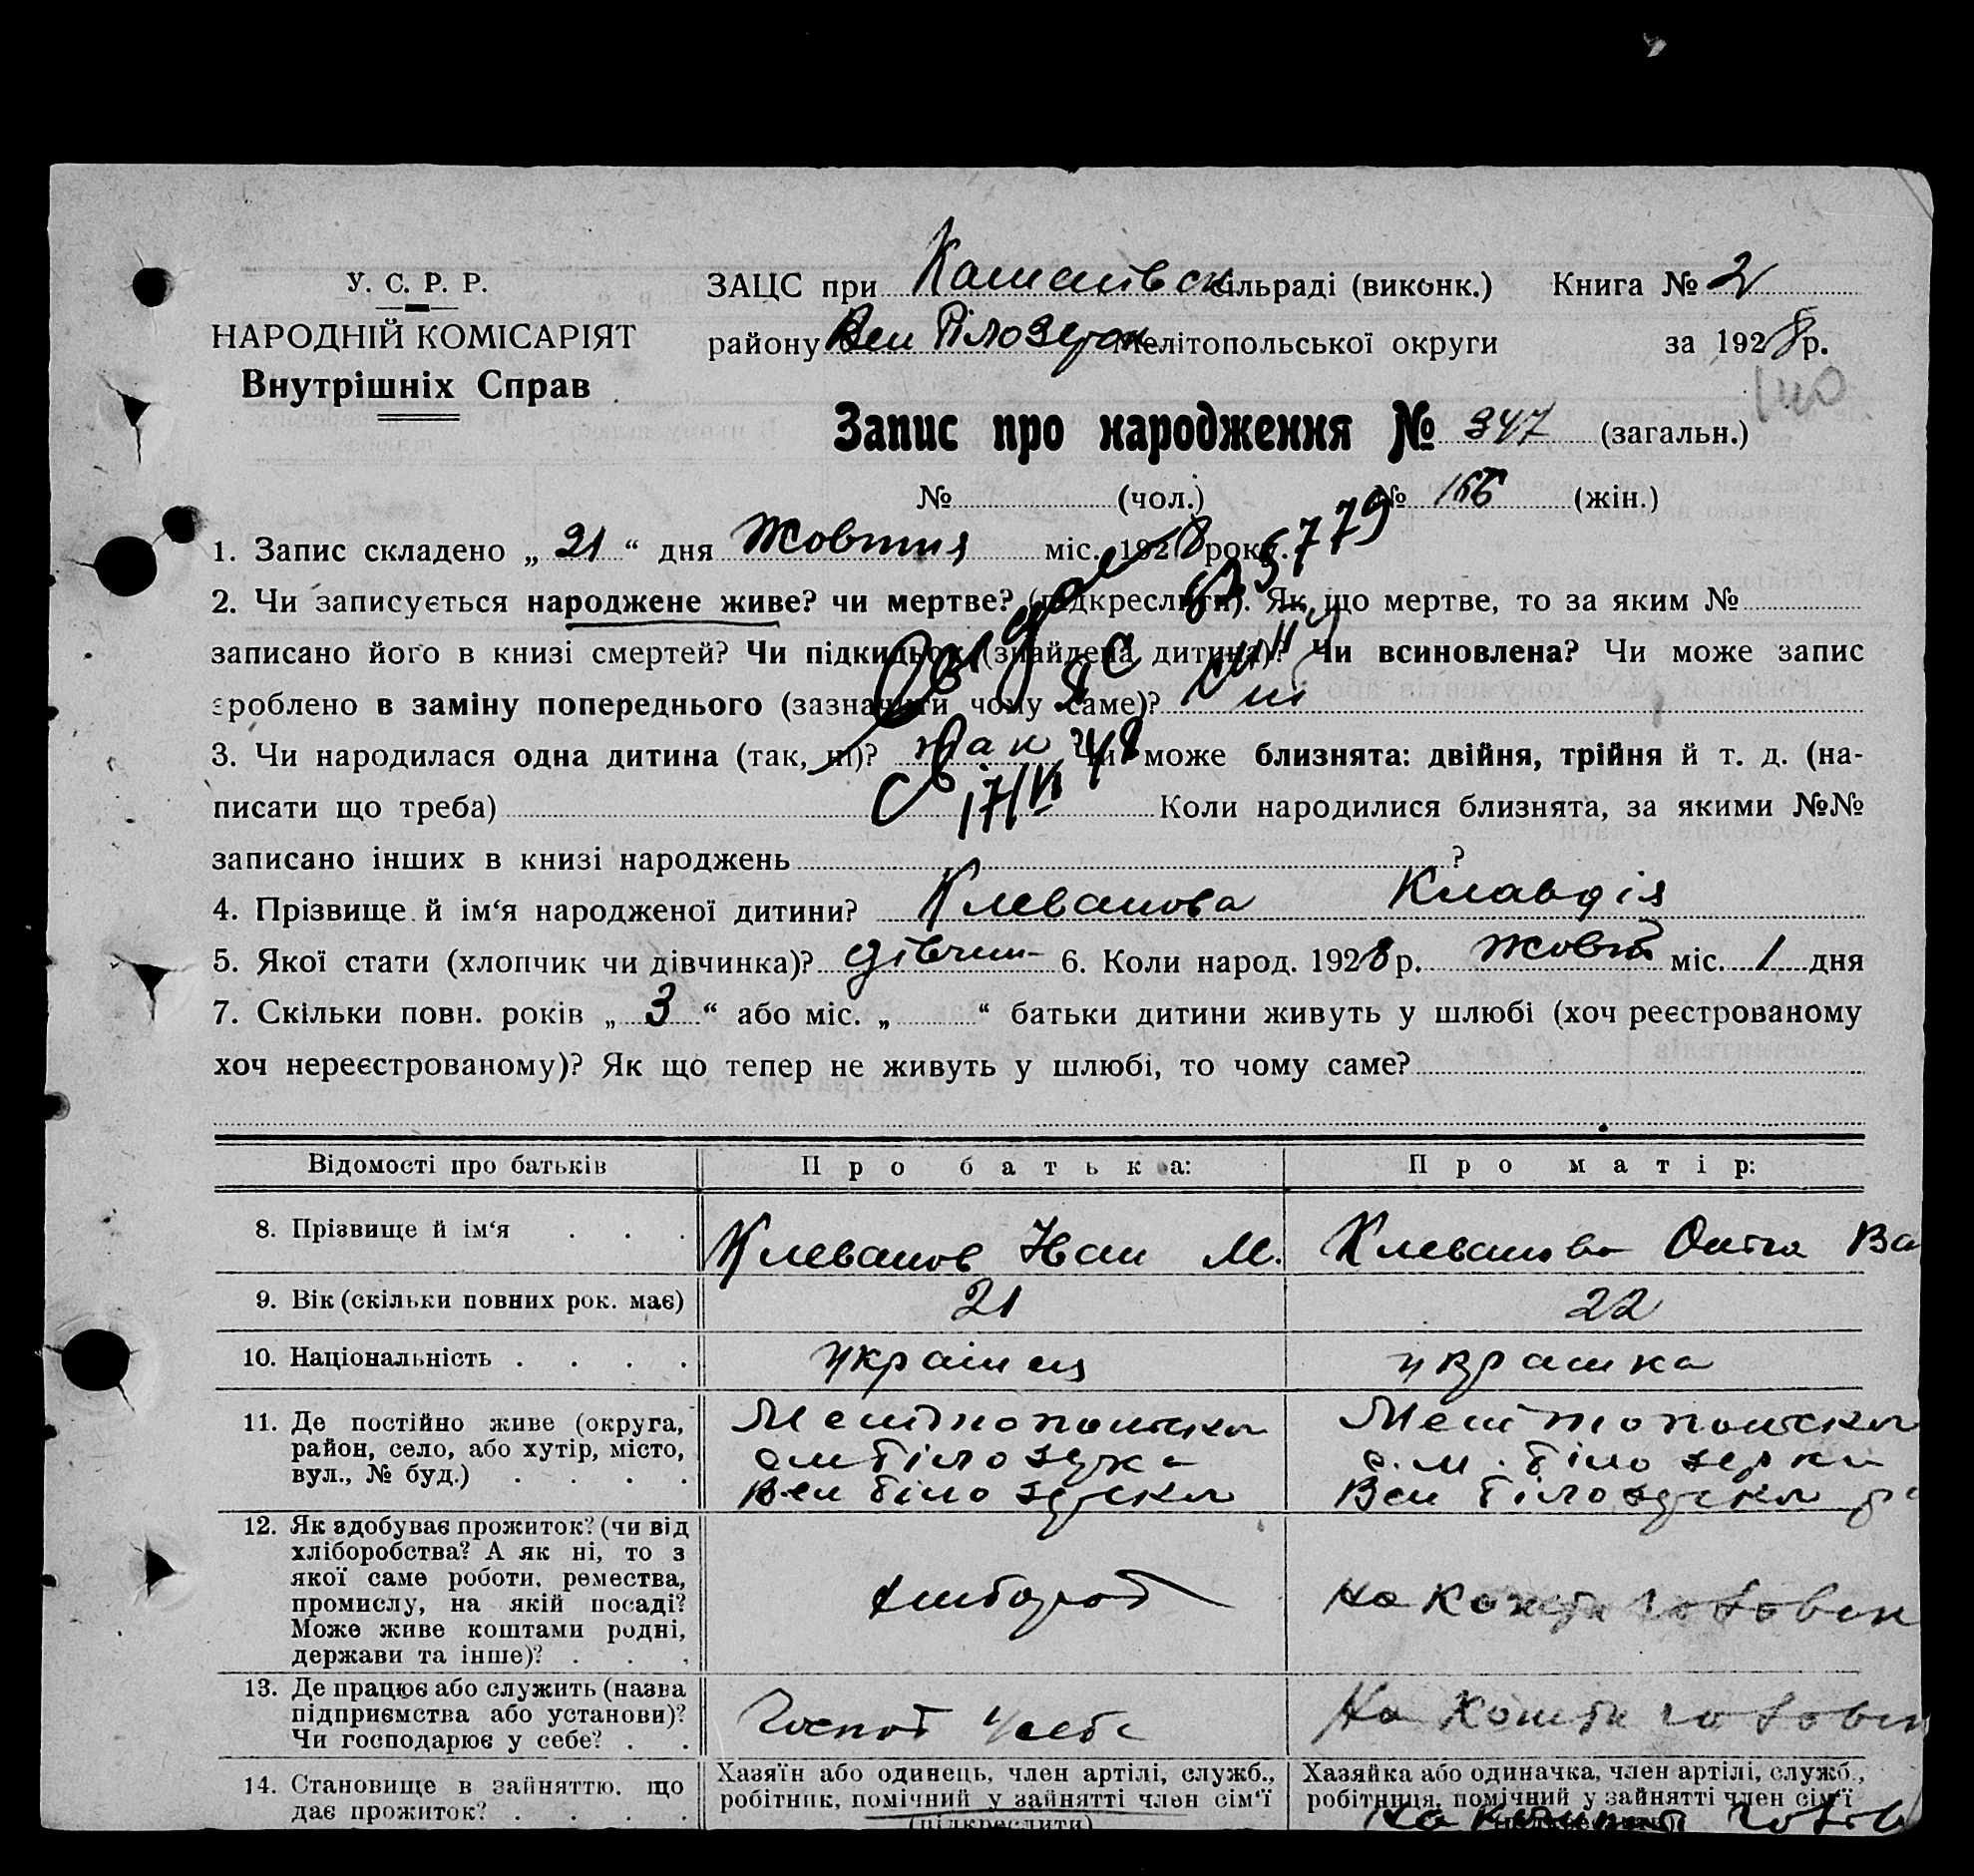 У. С. Р. Р.
НАРОДНІЙ КОМІСАРІЯТ
Внутрішніх Справ
ЗАЦС при сільраді (виконк.) Книга № 2
району Вел Білозерск Мелітопольської округи за 1928 р.
140
Запис про народження № 347 (загальн.)
№ (чол.) № 166 (жін.)
1. Запис складено „ 21 “ дня Жовтня міс. 1928 року.
2. Чи записується народжене живе? чи мертве? (підкреслити). Як що мертве, то за яким №
записано його в книзі смертей? Чи підкидьок (знайдена дитина)? Чи всиновлена? Чи може запис
зроблено в заміну попереднього (зазначити чому саме)? ні
3. Чи народилася одна дитина (так, ні)? так Чи може близнята: двійня, трійня й т. д. (на-
писати що треба) Коли народилися близнята, за якими №№
записано інших в книзі народжень ?
4. Прізвище й ім‘я народженої дитини? Клеванова Клавдія
5. Якої стати (хлопчик чи дівчинка)? дівчин 6. Коли народ. 1928 р. Жовт міс. 1 дня
7. Скільки повн. років „ 3 “ або міс. „ “ батьки дитини живуть у шлюбі (хоч реєстрованому
хоч нереєстрованому)? Як що тепер не живуть у шлюбі, то чому саме?
Відомості про батьків Про батька: Про матір:
8. Прізвище й ім‘я Клеванов Іван М. Клеванова Ва
9. Вік (скільки повних рок. має) 21 22
10. Національність українец украинка
11. Де постійно живе (округа, Мелітопольскої Мелітопольскої
район, село, або хутір, місто, Білозерка Білозерка
вул., № буд.) Вел Білозерскої Вел Білозерскої р
12. Як здобуває прожиток? (чи від
хліборобства? А як ні, то з
якої саме роботи, ремества,
промислу, на якій посаді? хлібороб На кошти головы
Може живе коштами родні,
держави та інше)?
13. Де працює або служить (назва
підприємства або установи)? Господ у себе На кошти
Чи господарює у себе?
14. Становище в зайняттю, що Хазяїн або одинець, член артілі, служб., Хазяйка або одиначка, член артілі, служб.,
дає прожиток? робітник, помічний у зайнятті член сім‘ї робітниця, помічний у зайнятті член сім‘ї
(підкреслити) На кошти